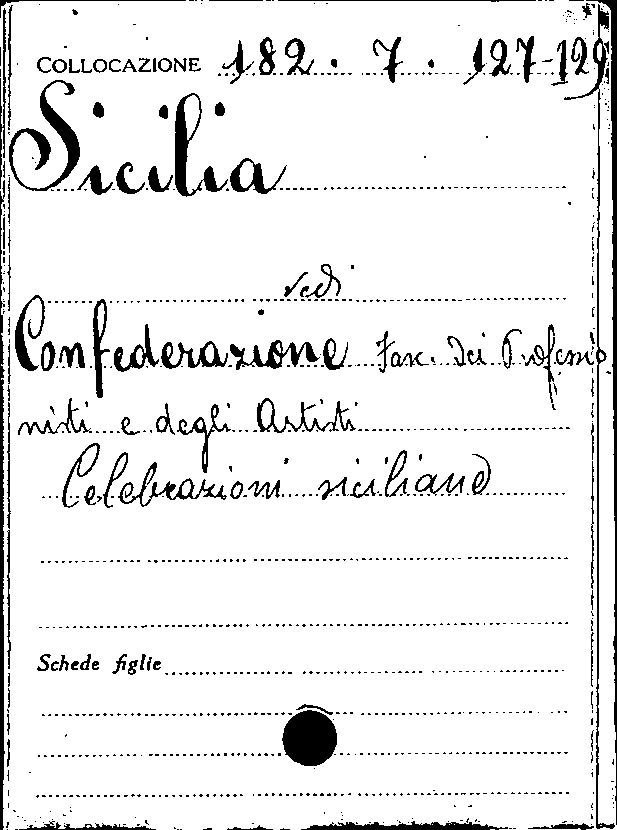 COLLOCAZIONE 182.7.127-129
Sicilia
vedi
Confederazione Fasc. dei Professio
nisti e degli Artisti
Celebrazioni siciliane
Schede figlie